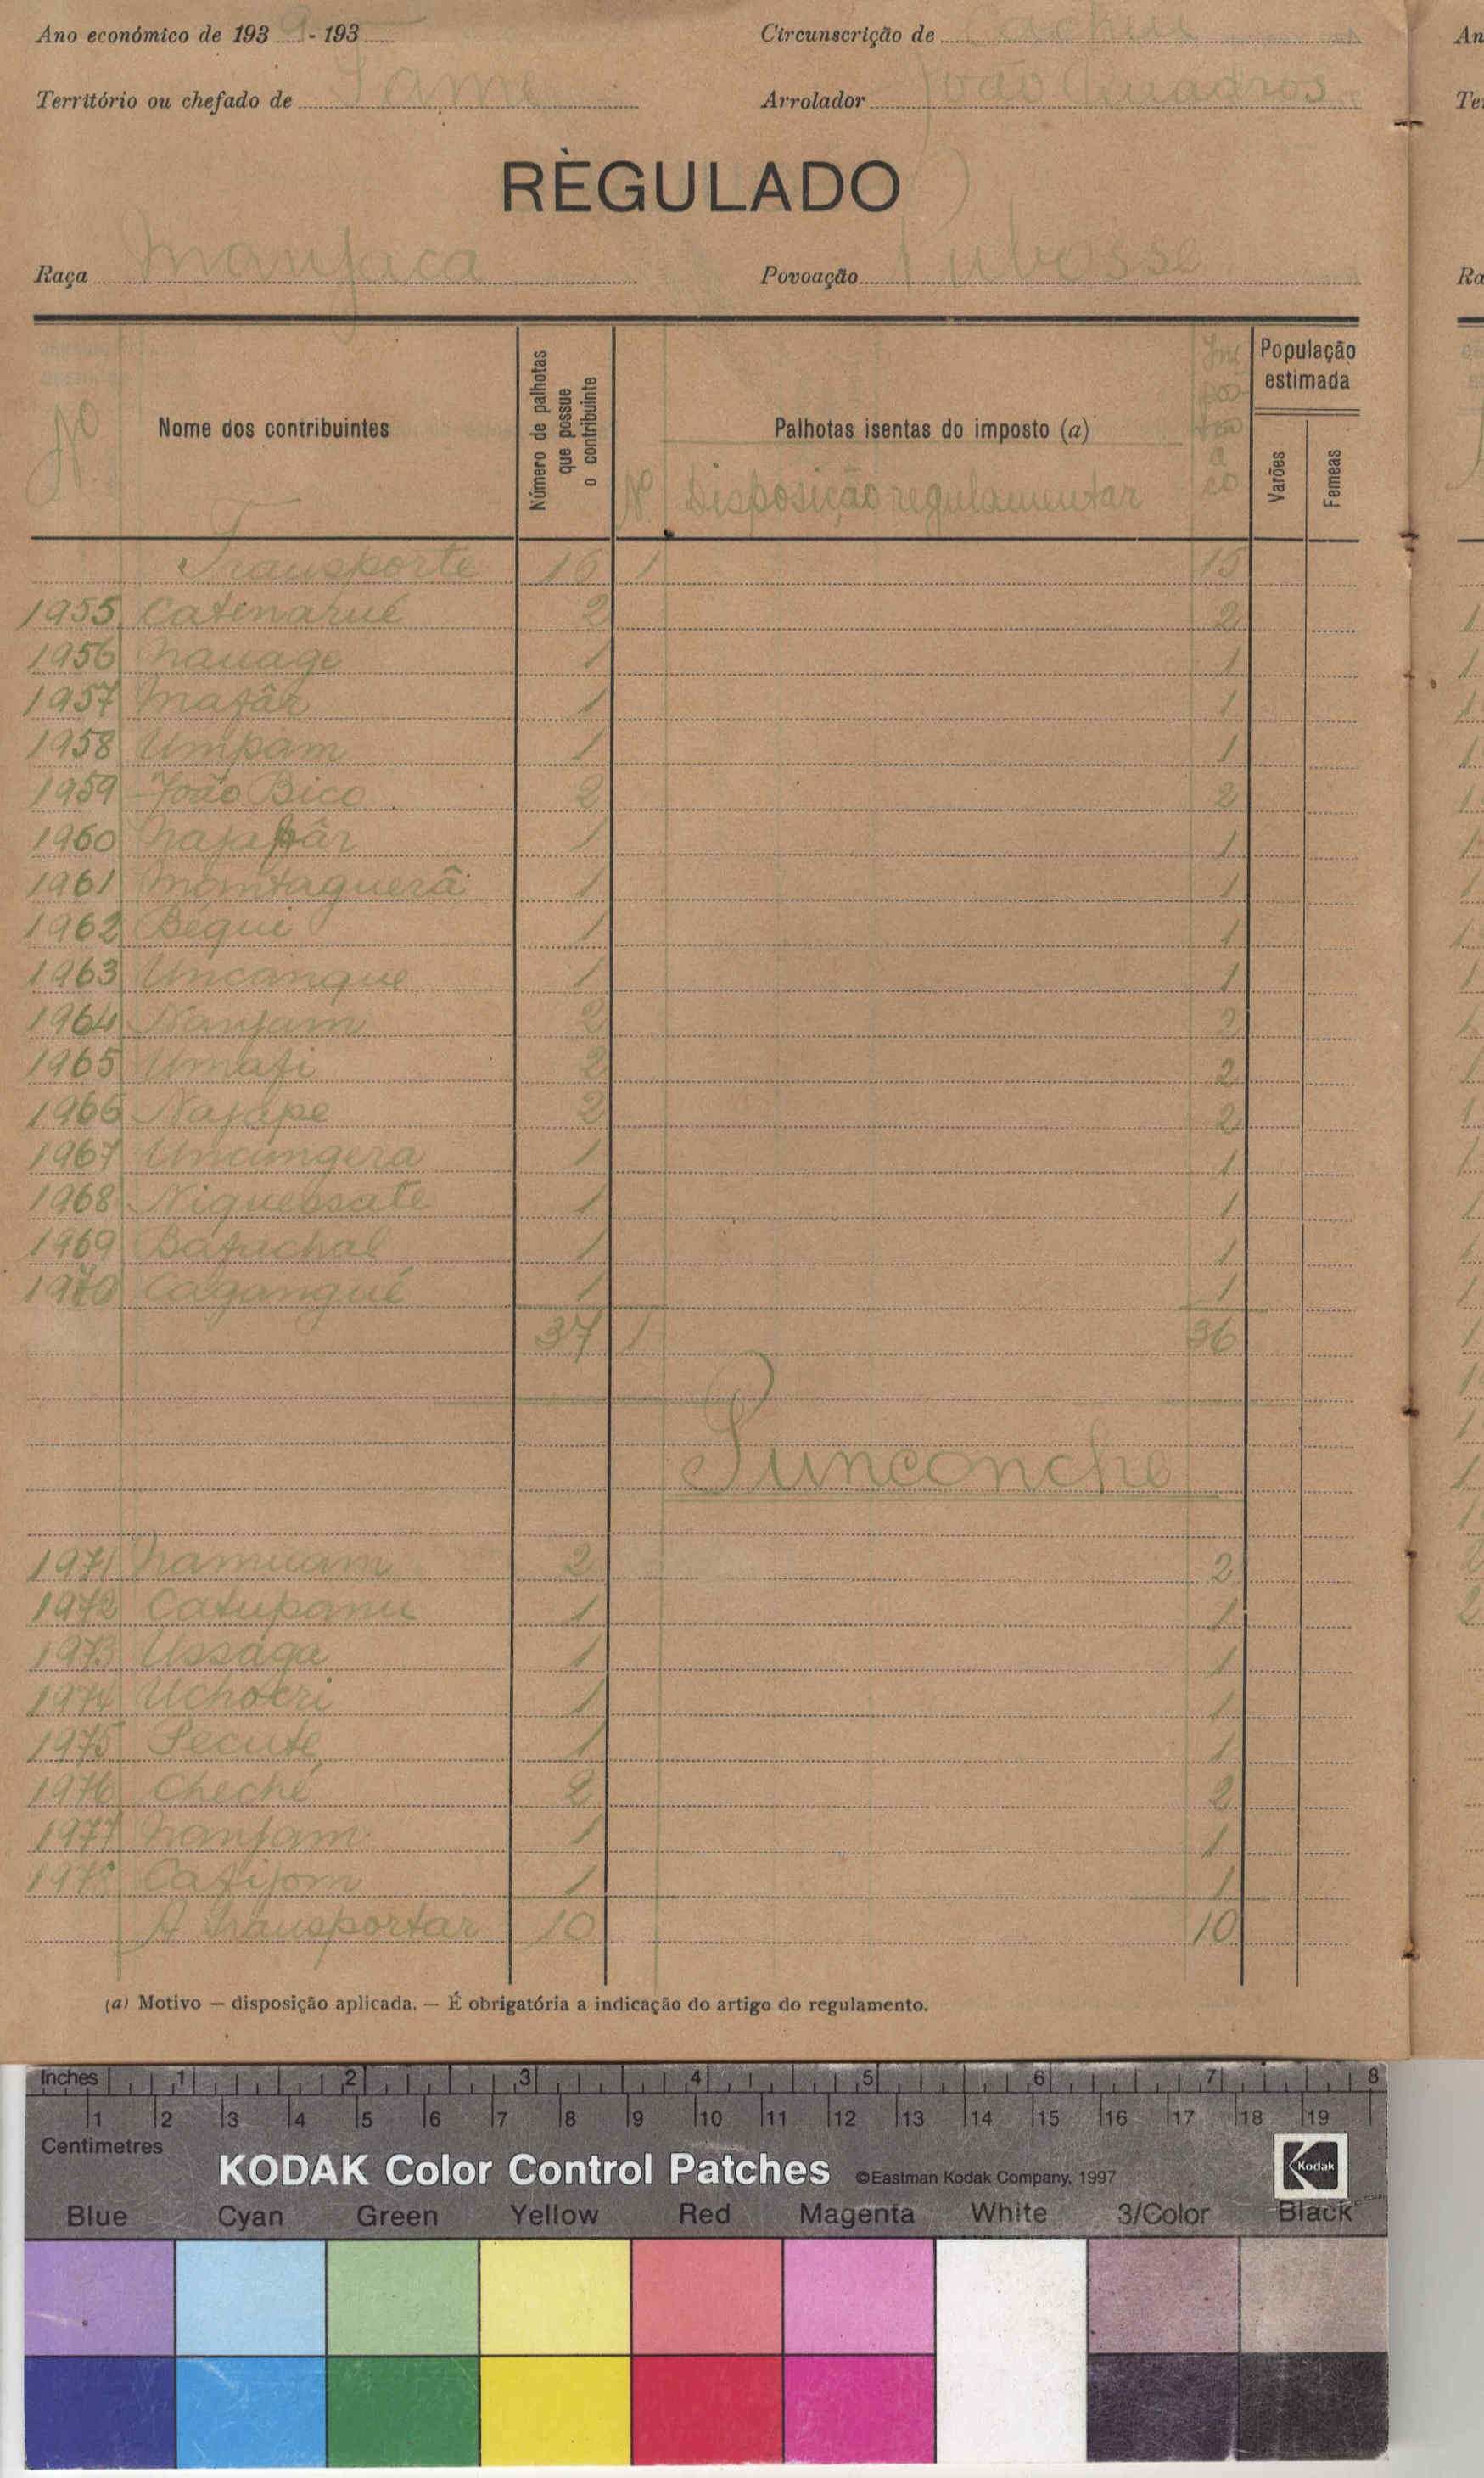 Ano económico de 1939-193
Circunscrição de
Território ou chefado de Tame
Arrolador João Quadros
RÈGULADO
Raça Manjaca
Povoação Pubosse
Nº
Nome dos contribuintes
Número de palhotas que possue o contribuinte
Palhotas isentas do imposto (a)
Nº Disposição regulamentar
População estimada
Varões
Femeas
Transporte 16 1 15
1955 Catenarué 2 2
1956 Nauage 1 1
1957 Mafâr 1 1
1958 Umpam 1 1
1959 João Bico 2 2
1960 1 1
1961 Montaguerâ 1 1
1962 Bequi 1 1
1963 Uncangue 1 1
1964 Nanjam 2 2
1965 Umafi 2 2
1966 Najape 2 2
1967 Uncungera 1 1
1968 Niquessate 1 1
1969 Bafachal 1 1
1970 Cagangué 1 1
37 1 36
Punconche
1971 Namuam 2 2
1972 Catupanu 1 1
1973 Ussága 1 1
1974 Uchocri 1 1
1975 Pecute 1 1
1976 Cheché 2 2
1977 Nanjam 1 1
1978 Cafijom 1 1
A transportar 10 10
(a) Motivo — disposição aplicada. — É obrigatória a indicação do artigo do regulamento.
Inches 1 2 3 4 5 6 7 8
1 2 3 4 5 6 7 8 9 10 11 12 13 14 15 16 17 18 19
Centimetres
KODAK Color Control Patches ©Eastman Kodak Company, 1997 Kodak
Blue Cyan Green Yellow Red Magenta White 3/Color Black